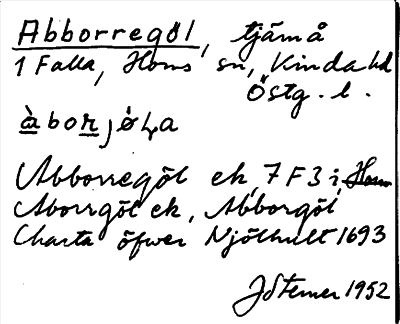 Abborregöl, tjärn å
1 Falla, Horns sn, Kinda hd
Östg. l.
Abborregöl ek, 7 F 3 i,
Aborrgöl ek, Abborgöl
Charta öfwer Njölhult 1693
1952